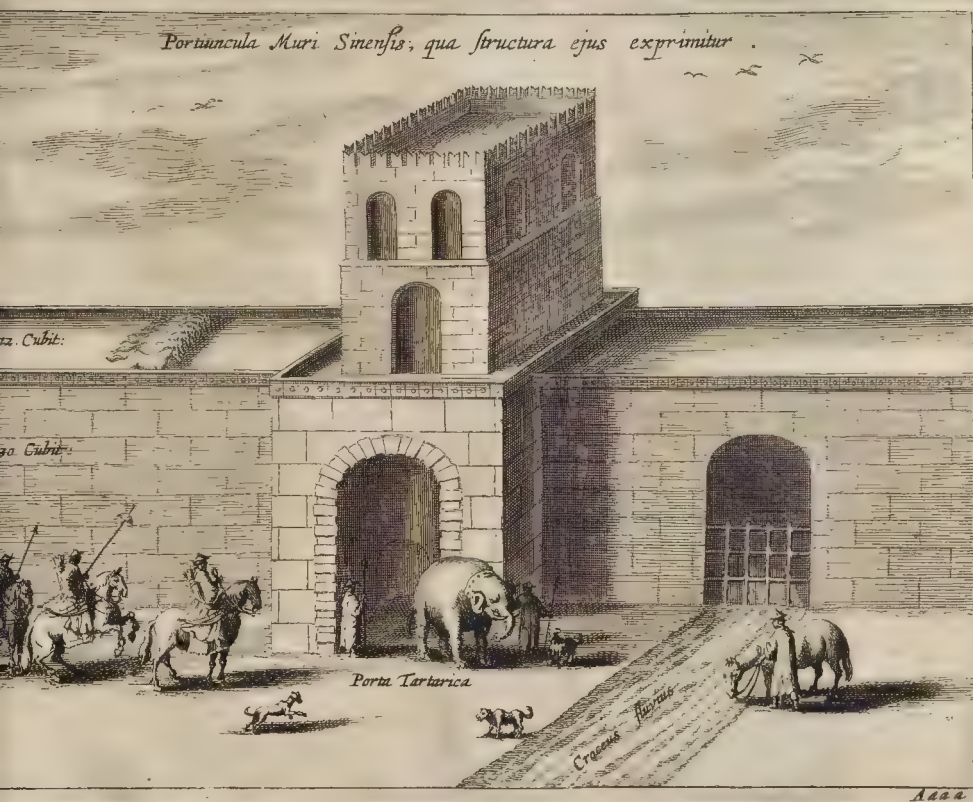 Portiuncula Muri Sinensis, qua structura ejus exprimitur .
Cubit:
Cubit:
Porta Tartarica
Croceus fluvius
Aaaa